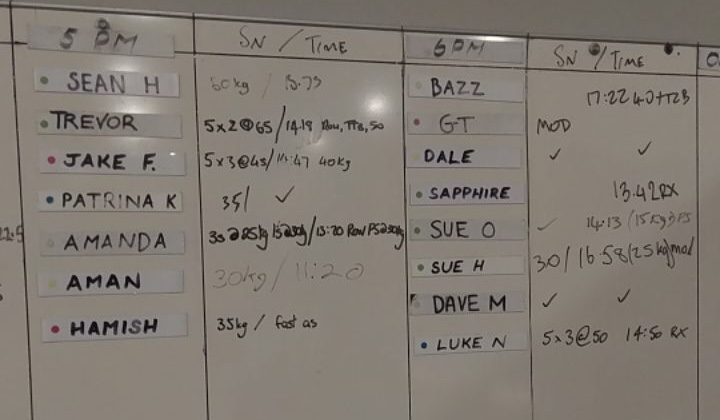 5 PM SN / TIME 6PM SN / TIME
SEAN H 60kg /
TREVOR 5x2@65/14.19 Row, TTB, 50
JAKE F. 5x3@45/11:47 40kg
PATRINA K 35/ ✓
AMANDA /13:20 Row
AMAN 30kg / 11:20
HAMISH 35kg / fast as
BAZZ 17:22
GT MOD
DALE ✓ ✓
SAPPHIRE 13.42RX
SUE O ✓ 14.13
SUE H 30/16.58(25kg)mod
DAVE M ✓ ✓
LUKE N 5x3@50 14:50 RX